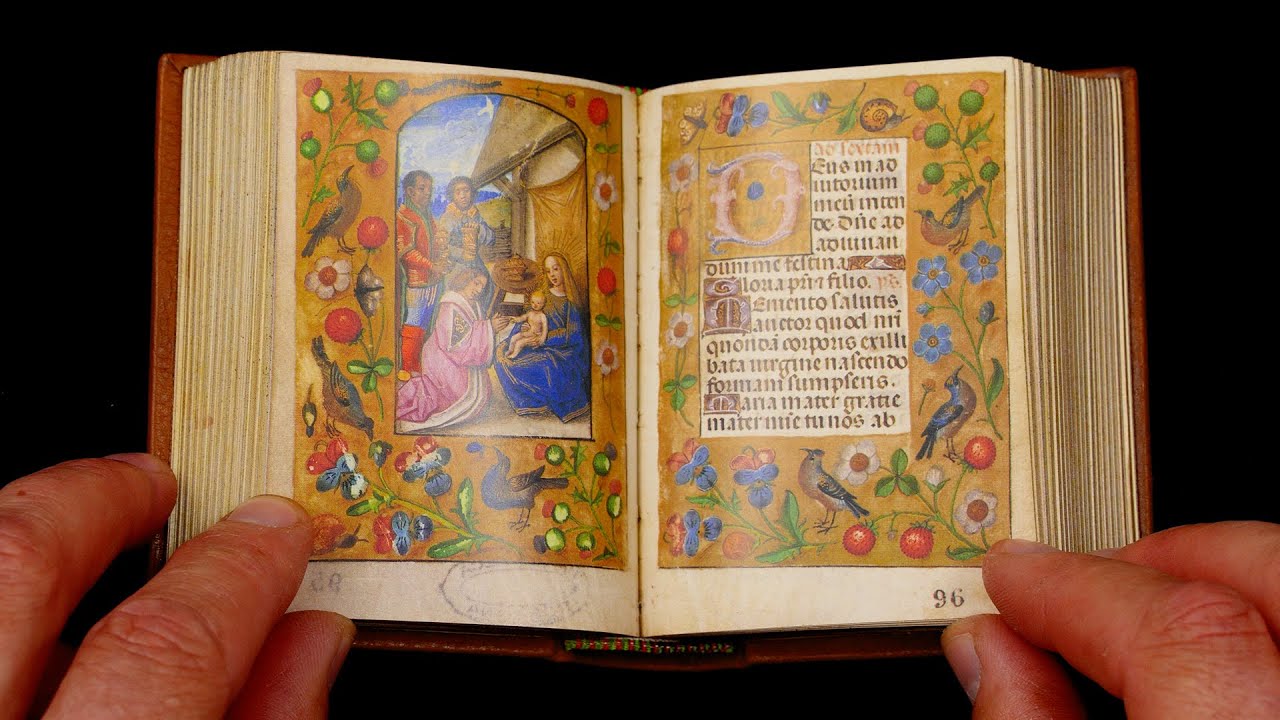 ad sextam
Eus in ad
iutorium
meū inten
de. Dñe ad
adiuuan
dum me festina
Gloria pr̄i ⁊ filio. ps̄.
Memento salutis
auctor quod nr̄i
quondā corporis ex illi
bata uirgine nascendo
formam sumpseris.
Maria mater gratie
mater mīe tu nos ab
96